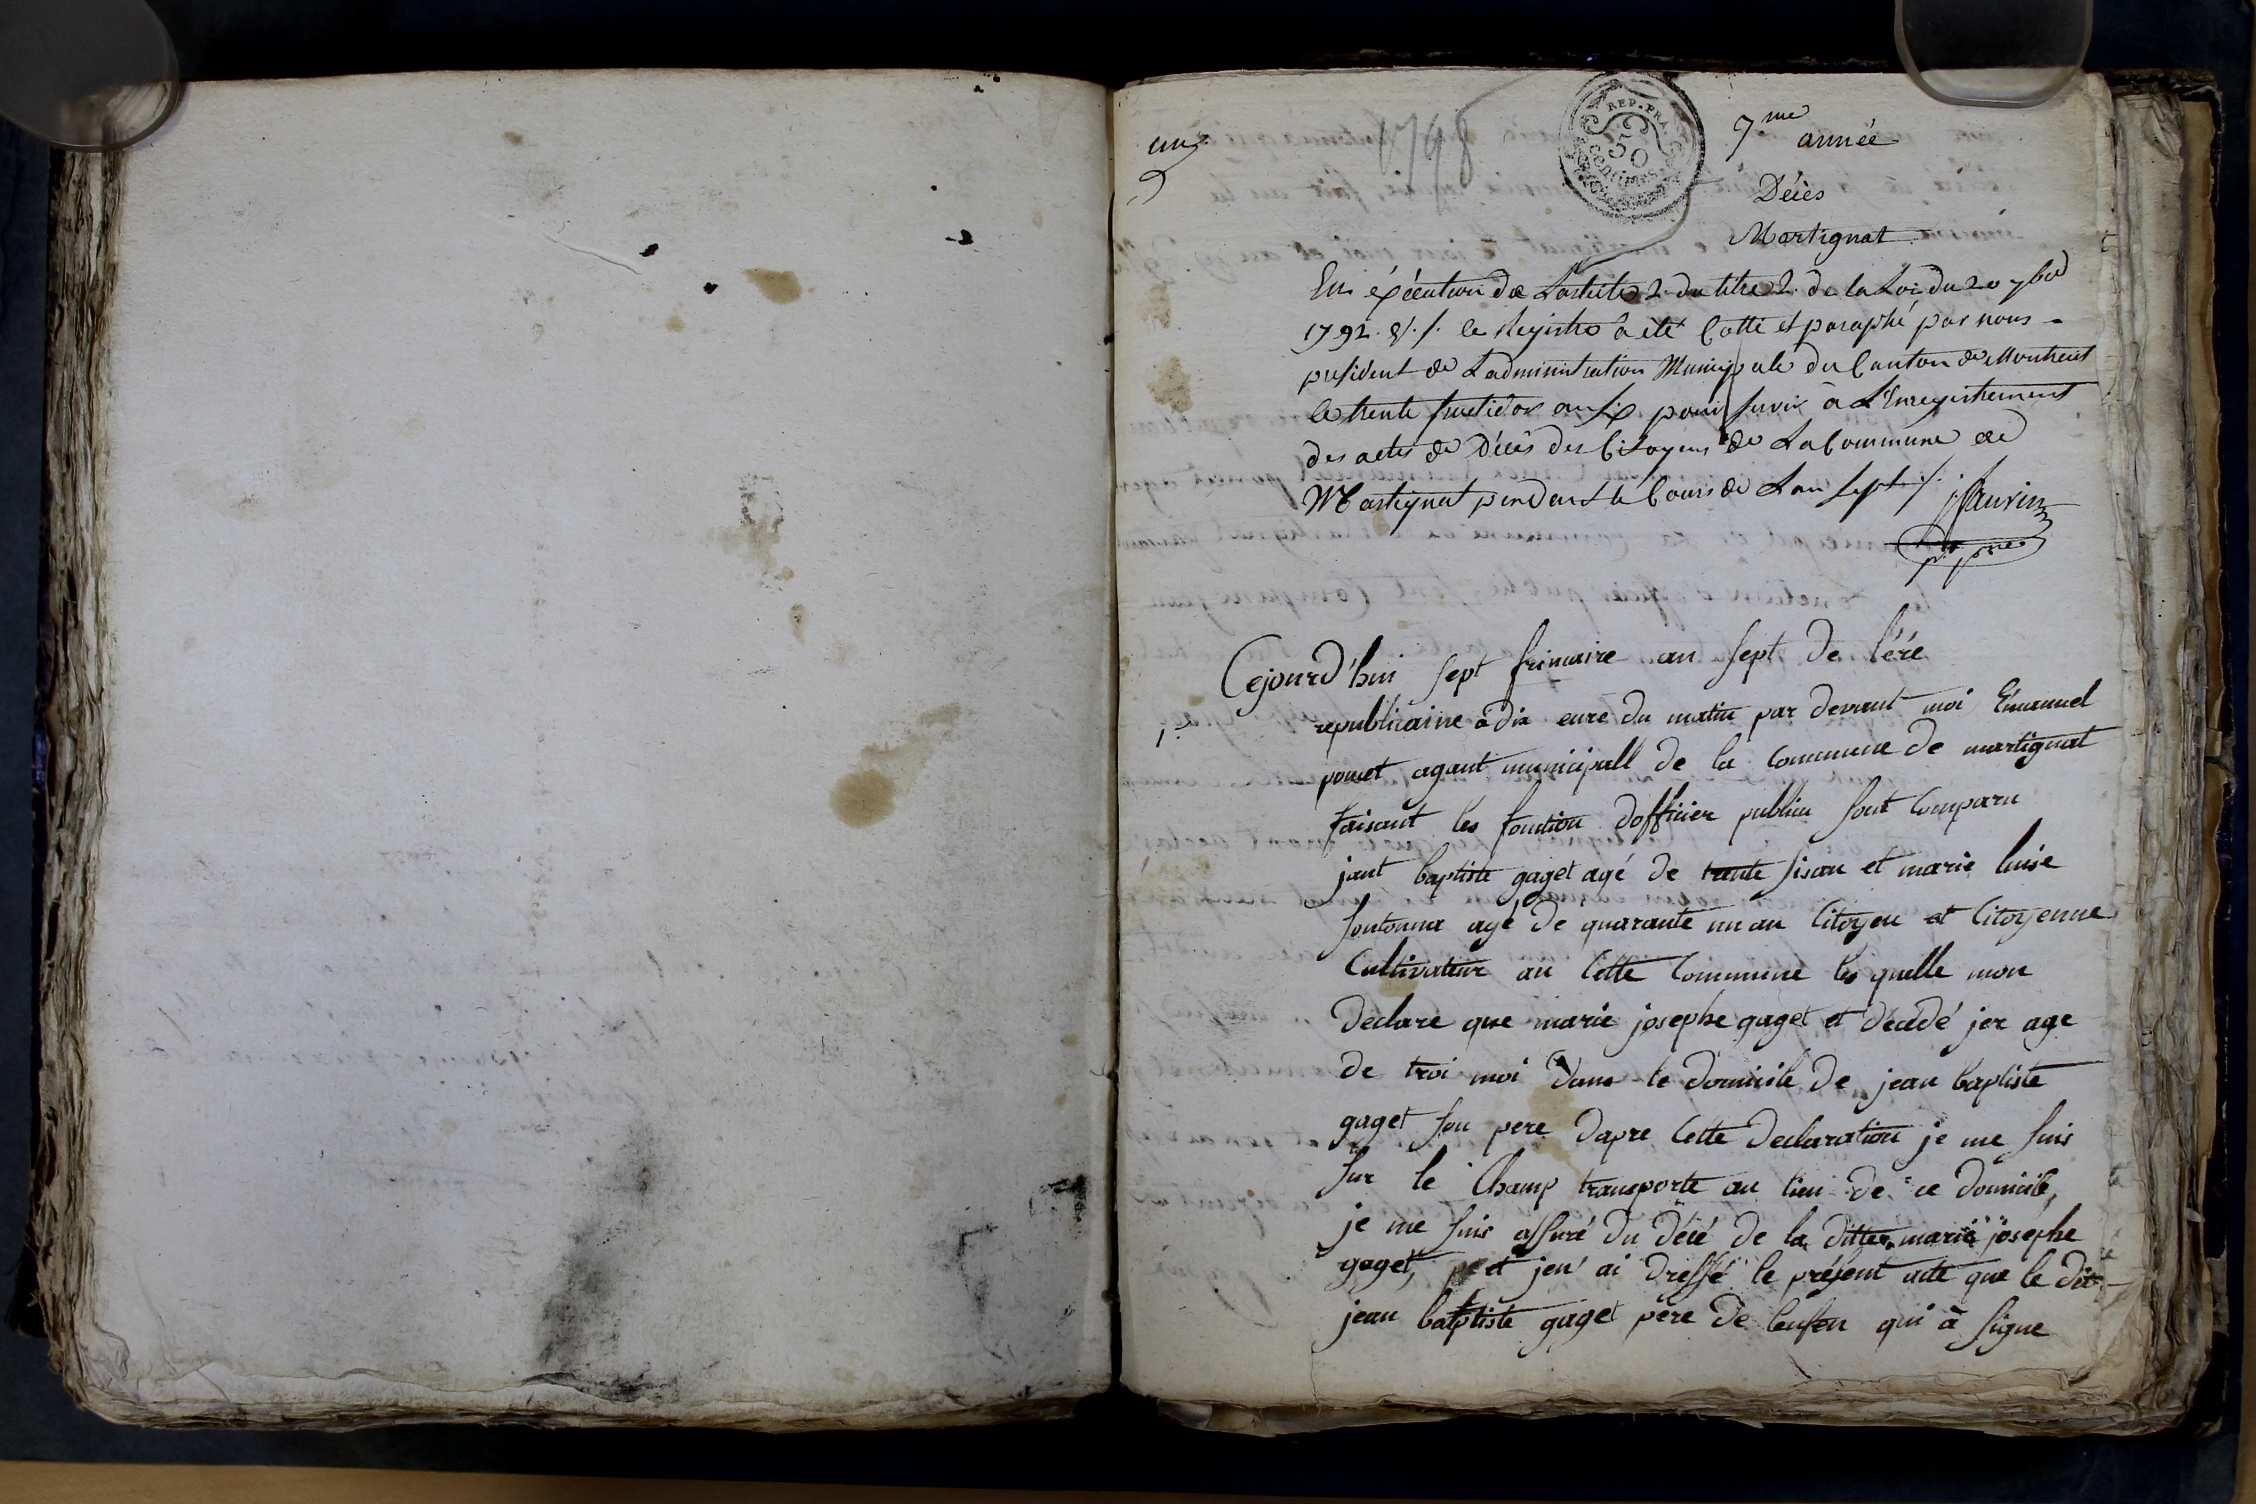 une
1798
REP. FRA.
50
centimes
7me
année
Décès
Martignat
En éxécution de L'article 2. du titre 2. de la Loi du 20 7bre
1792. v./. le Registre à été Cotté et paraphé par nous
président de L'administration Municipale du Canton de Montreal
le trente fructidor an six pour servir à L'Enregistrement
des actes de Décès des Citoyens de La Commune de
Martignat pendant le Cours de L'an sept ./.
Cejourd'hui sept frimaire an sept de l'ére
1er
republicaine à dix eure du matin par devant moi Emanuel
ponset agant municipall de la Commune de martignat
faisant les fontion dofficier publicu sont Comparu
jant baptiste gaget agé de trante sisan et marie luise
fontanna agé de quarante un an Citoyen et Citoyenne
Cultivateur an Cette Commune les quelle mon
declare que marie josephe gaget et décédé jer age
de troi moi dans le domicile de jean baptiste
gaget son pere dapre Cette declaration je me suis
sur le Champ transporte au lieu de ce domicile,
je me suis assuré du décé de la ditte marie josephe
gaget, et jen' ai dressé le présent acte que le dit
jean baptiste gaget père de lenfen qui à signe